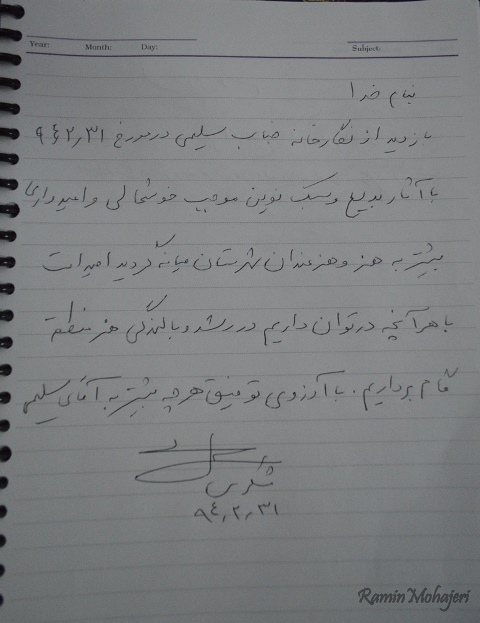 Year: Month: Day: Subject:
بنام خدا
بازدید از نگارخانه جناب سلیمی در مورخ ۹۴٫۲٫۳۱
با آثار بدیع و سبک نوین موجب خوشحالی و امیدواری
بیشتر به هنر و هنرمندان شهرستان میانه گردید امید است
با هر آنچه در توان داریم در رشد و بالندگی هنر منطقه
گام برداریم. با آرزوی توفیق هر چه بیشتر به آقای سلیمی
۹۴٫۲٫۳۱
Ramin Mohajeri